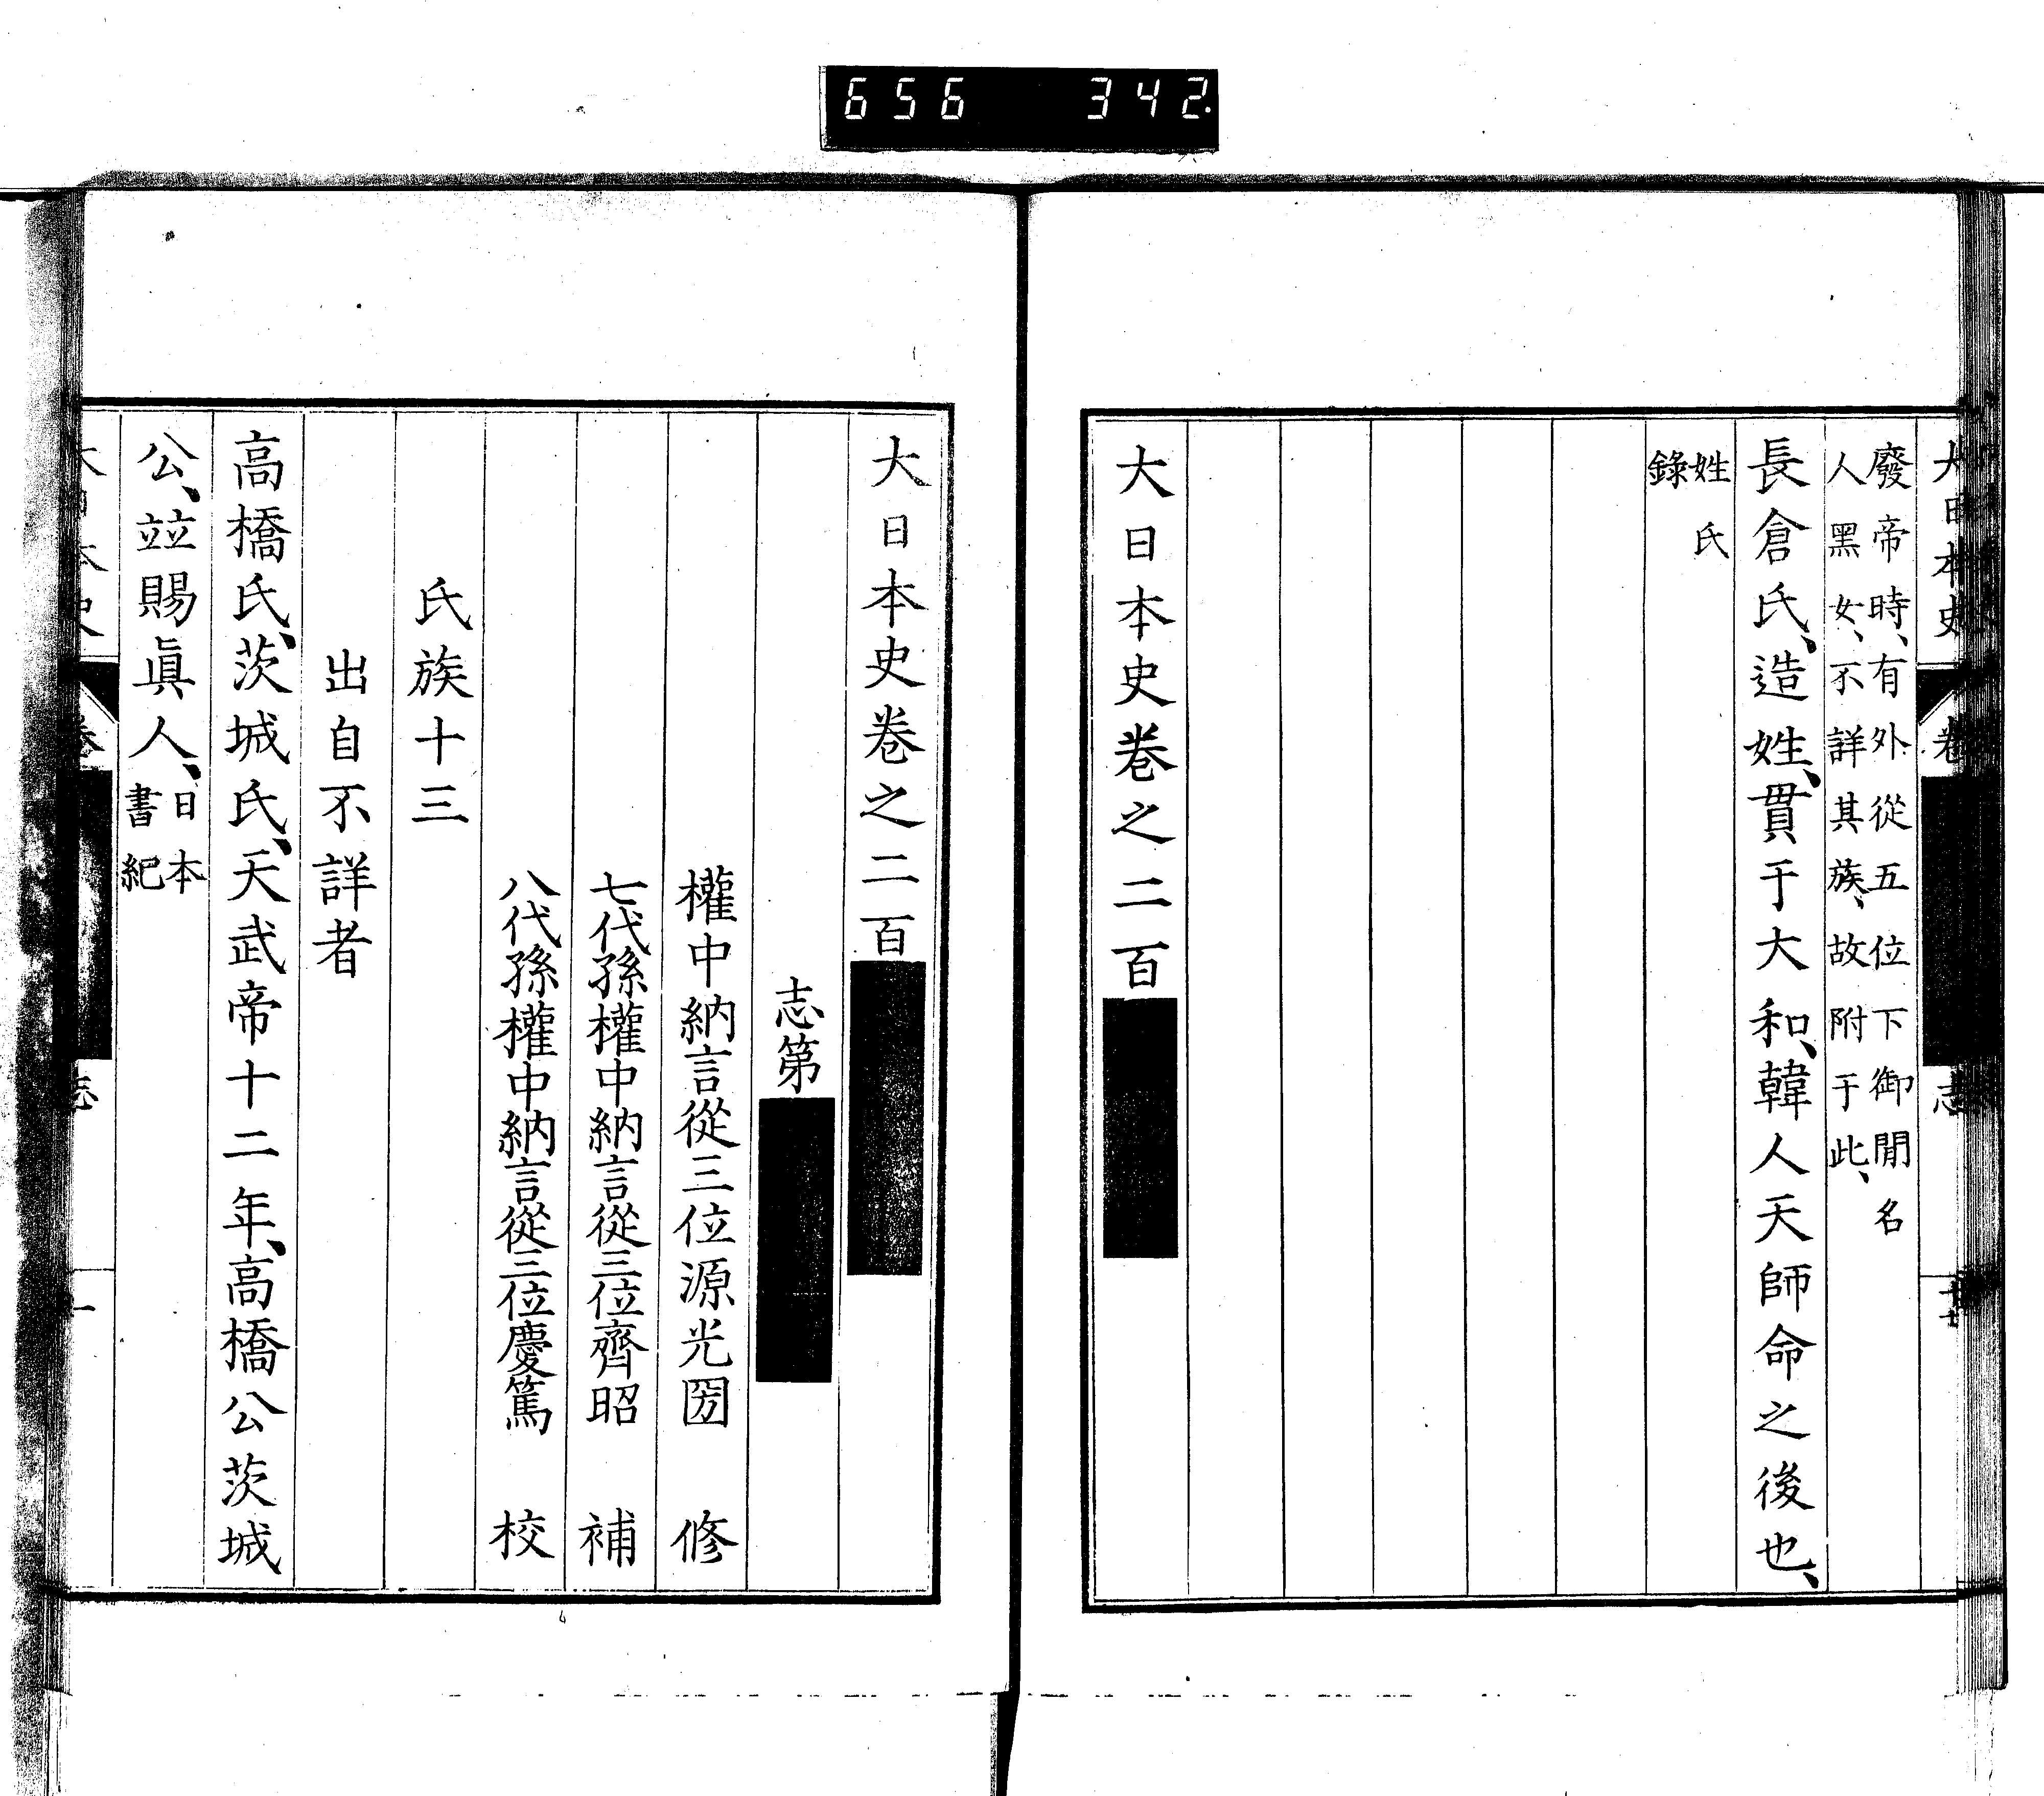 656 342.
大日本史 卷 志 廿七
廢帝時、有外從五位下御閒名
人黑女、不詳其族、故附于此、
長倉氏、造姓、貫于大和、韓人天師命之後也、
姓氏
錄
大日本史卷之二百
大日本史卷之二百
志第
權中納言從三位源光圀 修
七代孫權中納言從三位齊昭 補
八代孫權中納言從三位慶篤 校
氏族十三
出自不詳者
高橋氏、茨城氏、天武帝十二年、高橋公茨城
公、竝賜眞人、日本
書紀
大日本史 卷 志 一